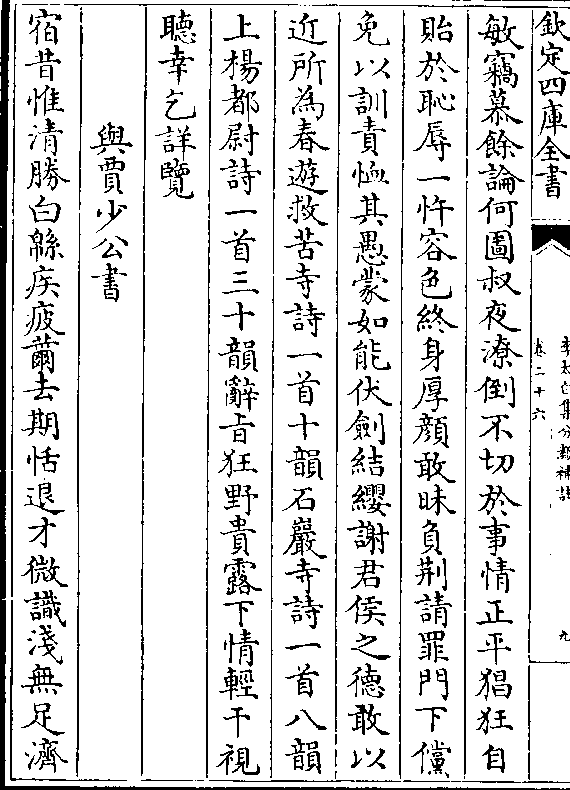 欽定四庫全書
李太白集分類補註
卷二十六
九
敏竊慕餘論何圖叔夜潦倒不切於事情正平猖狂自
貽於恥辱一忤容色終身厚顔敢昧負荆請罪門下儻
免以訓責恤其愚蒙如能伏劍結纓謝君侯之德敢以
近所為春遊救苦寺詩一首十韻石巖寺詩一首八韻
上楊都尉詩一首三十韻辭旨狂野貴露下情輕干視
聽幸乞詳覽
與賈少公書
宿昔惟清勝白緜疾疲薾去期恬退才微識淺無足濟